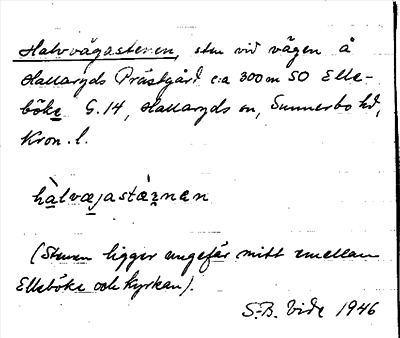 Halvvägastenen, sten vid vägen å
Hallaryds Prästgård c:a 300 m SO Elle-
böke G. 14, Hallaryds sn, Sunnerbo hd,
Kron. l.
hàlvæjastæ̀nən
(Stenen ligger ungefär mitt emellan
Elleböke och kyrkan).
S.-B. Vide 1946